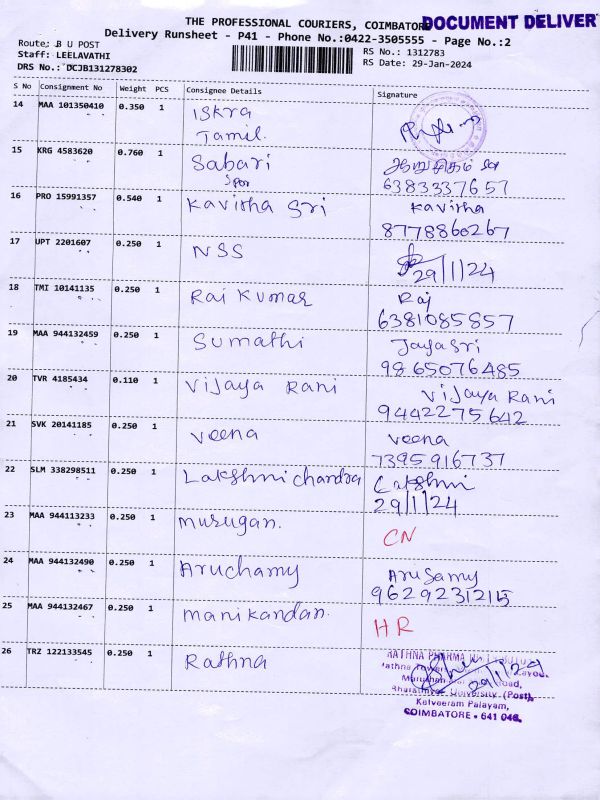 THE PROFESSIONAL COURIERS, COIMBATORE
DOCUMENT DELIVER
Delivery Runsheet - P41 - Phone No.:0422-3505555 - Page No.:2
Route: B U POST
Staff: LEELAVATHI
DRS No.: DCJB131278302
RS No.: 1312783
RS Date: 29-Jan-2024
S No Consignment No Weight PCS Consignee Details Signature
14 MAA 101350410 0.350 1 Iskra
Tamil.
15 KRG 4583620 0.760 1 Sabari
6383337657
16 PRO 15991357 0.540 1 Kavitha Sri Kavitha
8778860267
17 UPT 2201607 0.250 1 NSS
29/1/24
18 TMI 10141135 0.250 1 Raj Kumar Raj
6381085857
19 MAA 944132459 0.250 1 Sumathi Jayasri
9865076485
20 TVR 4185434 0.110 1 Vijaya Rani Vijaya Rani
9442275642
21 SVK 20141185 0.250 1 Veena Veena
7395916737
22 SLM 338298511 0.250 1 Lakshmi chandra Lakshmi
29/1/24
23 MAA 944113233 0.250 1 Murugan. CN
24 MAA 944132490 0.250 1 Aruchamy AruSamy
9629231215
25 MAA 944132467 0.250 1 Manikandan. HR
26 TRZ 122133545 0.250 1 Rathna
RATHNA PHARMA
Rathna Towers
Bharathiyar University (Post),
Kalveeram Palayam,
COIMBATORE - 641 046.